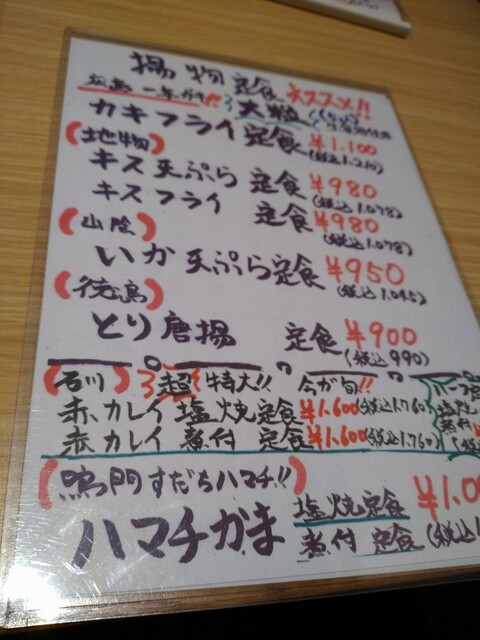 揚物定食 オススメ!!
広島 一年かき!! 大粒
カキフライ定食 ¥1.100
(税込1.210)
(地物)
キス天ぷら 定食 ¥980
(税込1.078)
キスフライ 定食 ¥980
(税込1.078)
(山陰)
いか天ぷら定食 ¥950
(税込1.045)
(徳島)
とり唐揚 定食 ¥900
(税込990)
(石川) 超特大!! 今が旬!!
赤カレイ 塩焼定食 ¥1.600(税込1.760)
赤カレイ 煮付 定食 ¥1.600(税込1.760)
塩焼
煮付
(鳴門すだちハマチ!!)
ハマチかま 塩焼定食
煮付 定食
¥1.0
(税込1